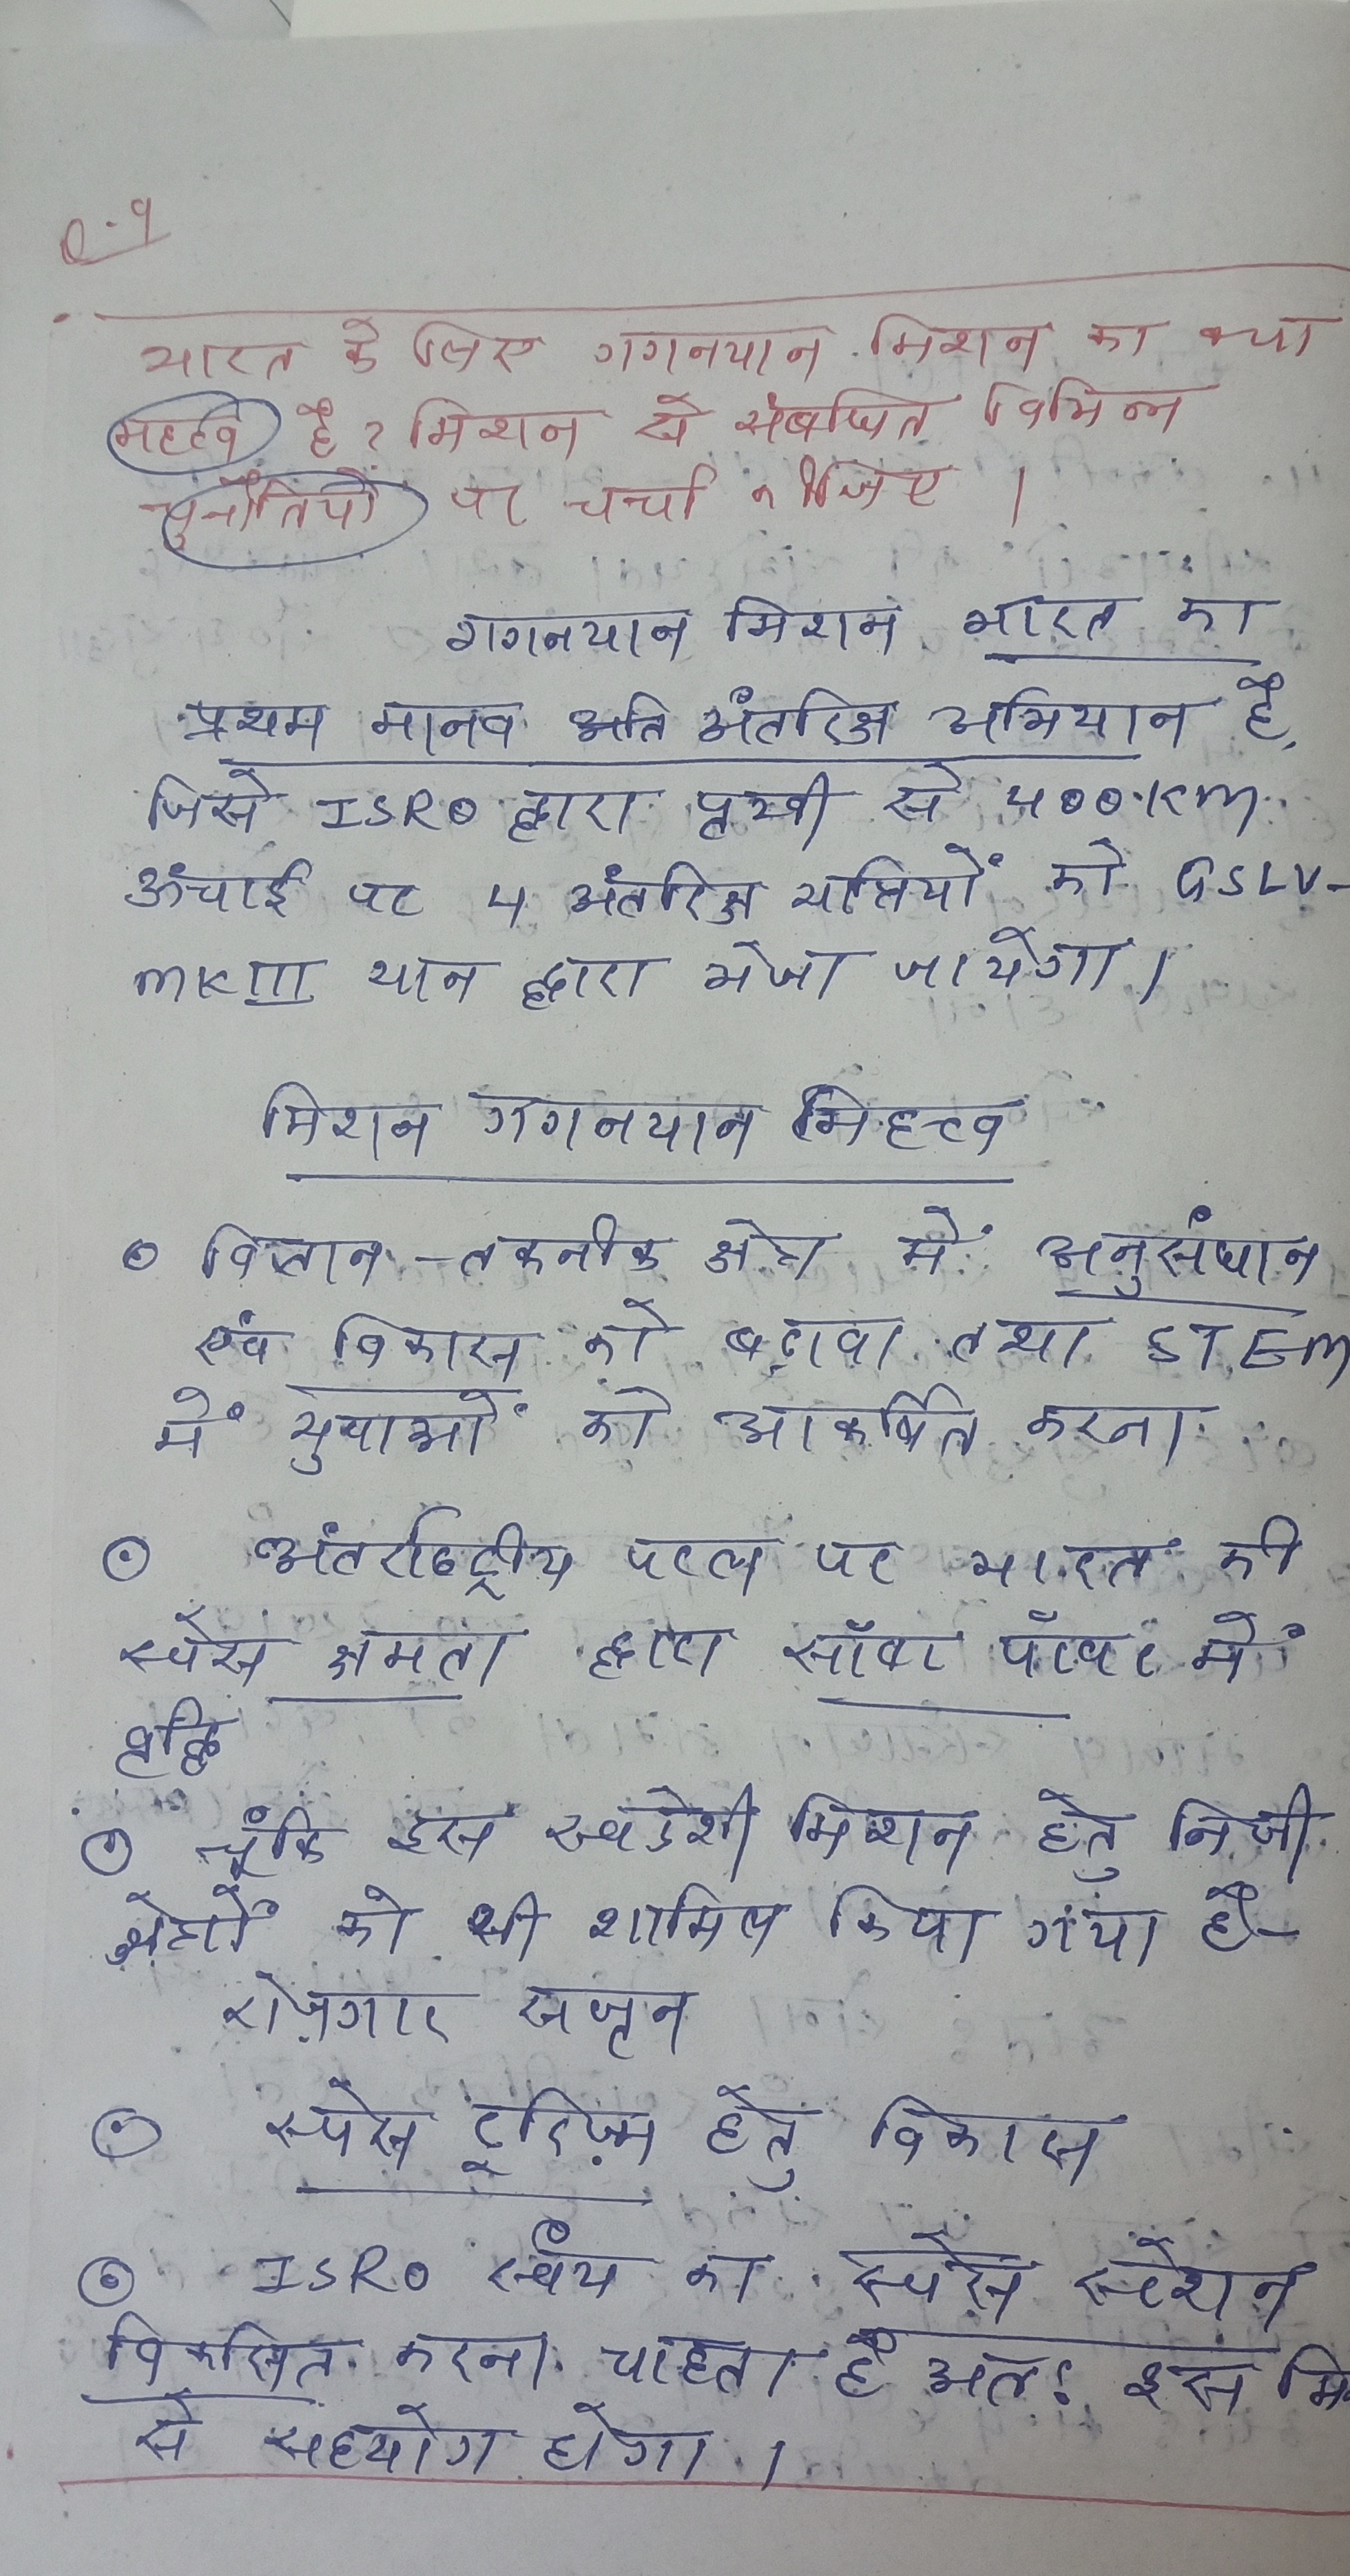 Q.9
भारत के लिए गगनयान मिशन का क्या
महत्व है? मिशन से संबंधित विभिन्न
चुनौतियों पर चर्चा कीजिए ।
गगनयान मिशन भारत का
प्रथम मानव अंतरिक्ष अभियान है,
जिसे ISRO द्वारा पृथ्वी से 400 km
ऊंचाई पर 4 अंतरिक्ष यात्रियों को GSLV-
MK III यान द्वारा भेजा जायेगा ।
मिशन गगनयान महत्त्व
विज्ञान-तकनीक क्षेत्र में अनुसंधान
एंव विकास को बढ़ावा तथा STEM
में युवाओं को आकर्षित करना
अंतर्राष्ट्रीय पटल पर भारत की
स्पेस क्षमता द्वारा सॉफ्ट पॉवर में
वृद्धि
चूंकि इस स्वदेशी मिशन हेतु निजी
क्षेत्रों को भी शामिल किया गया है-
रोज़गार सृजन
स्पेस टूरिज़्म हेतु विकास
ISRO स्वंय का स्पेस स्टेशन
विकसित करना चाहता है अतः इस मि
से सहयोग होगा ।